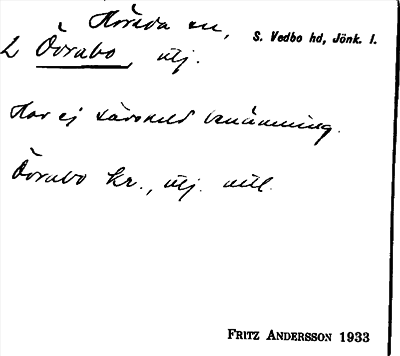 Höreda sn,
S. Vedbo hd, Jönk. l.
2 Övrabo, utj.
Har ej särskild benämning.
Övrabo kr., utj. till.
FRITZ ANDERSSON 1933